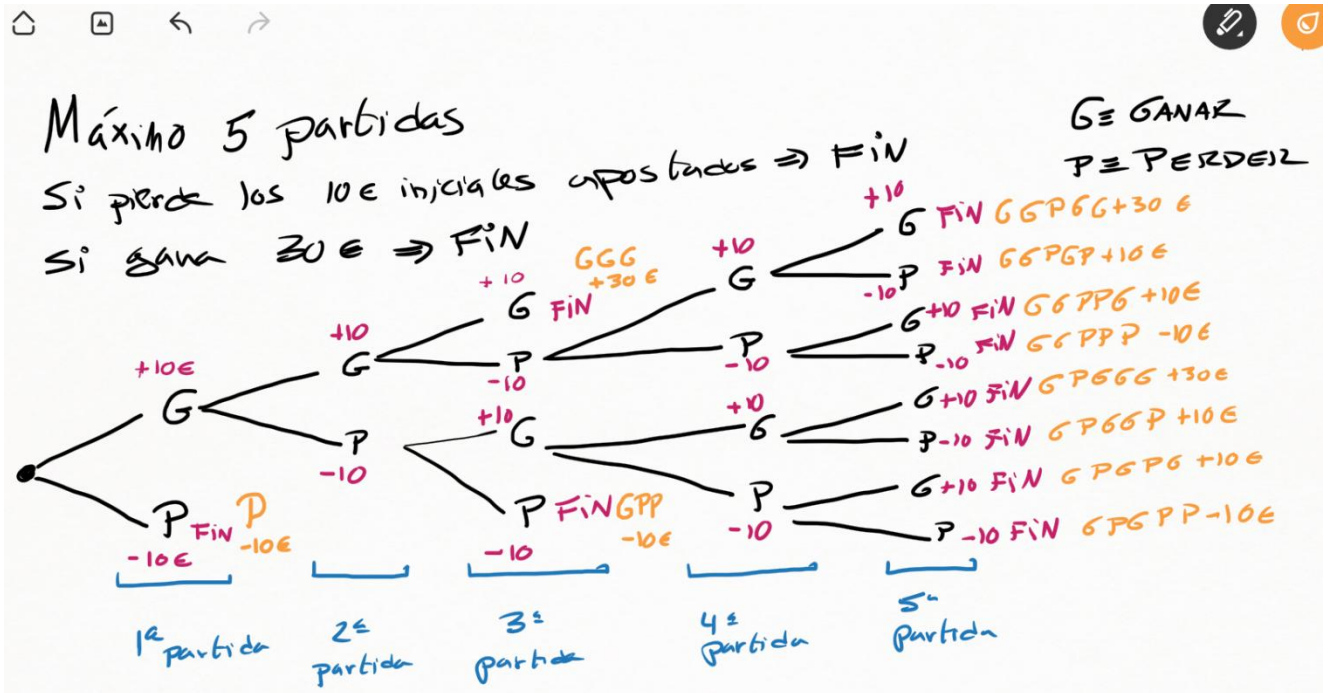 Máximo 5 partidas
Si pierde los 10€ iniciales apostados ⇒ FiN
Si gana 30€ ⇒ FiN
G≡ GANAR
P≡ PERDER
+10€
G
P FiN P
-10€ -10€
+10
G
P
-10
+10
G FiN
GGG
+30€
P
-10
+10
G
P FiN GPP
-10 -10€
+10
G
P
-10
+10
G
P
-10
+10
G FiN GGPGG+30€
-10 P FiN GGPGP+10€
G+10 FiN GGPPG+10€
P-10 FiN GGPPP -10€
G+10 FiN GPGGG +30€
P-10 FiN GPGGP +10€
G+10 FiN GPGPG +10€
P-10 FiN GPGPP-10€
1ª partida
2ª partida
3ª partida
4ª partida
5ª partida